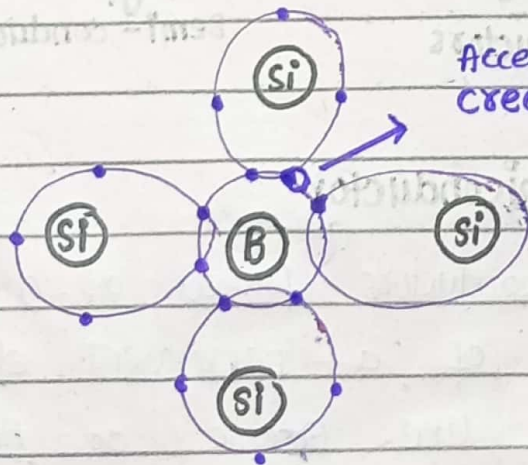 Si
Acce
crea
Si
B
Si
Si